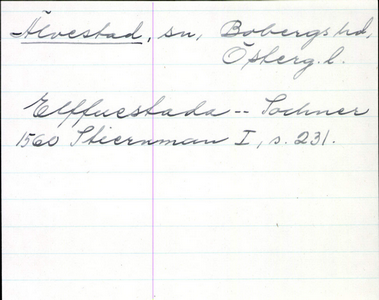 Älvestad, sn, Bobergs hd,
Östergl.
Elffuestada -- Sochner
1560 Stiernman I, s. 231.